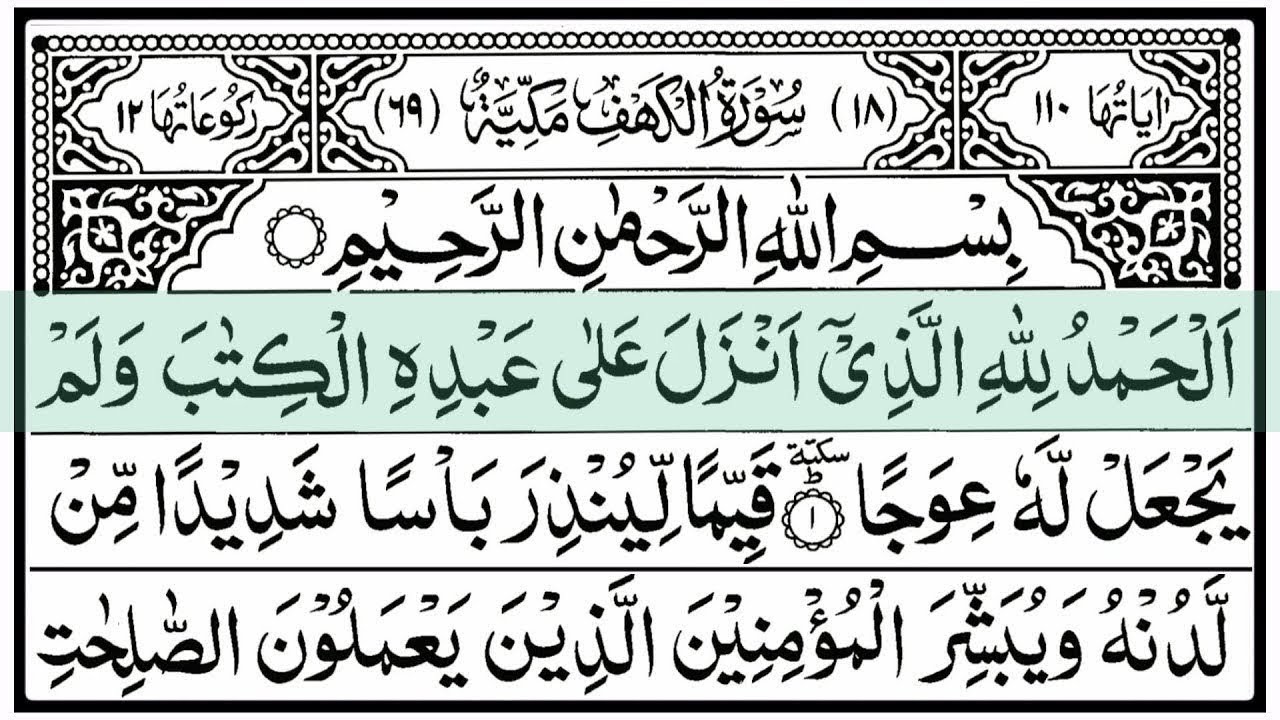 اٰیَاتُهَا ١١٠ (١٨) سُوْرَةُ الْكَهْفِ مَكِّیَّةٌ (٦٩) رُكُوْعَاتُهَا ١٢
بِسْمِ اللّٰهِ الرَّحْمٰنِ الرَّحِیْمِ
اَلْحَمْدُ لِلّٰهِ الَّذِیْۤ اَنْزَلَ عَلٰی عَبْدِهِ الْكِتٰبَ وَلَمْ
یَجْعَلْ لَّهٗ عِوَجًا ؕ سكتة ١ قَیِّمًا لِّیُنْذِرَ بَاْسًا شَدِیْدًا مِّنْ
لَّدُنْهُ وَیُبَشِّرَ الْمُؤْمِنِیْنَ الَّذِیْنَ یَعْمَلُوْنَ الصّٰلِحٰتِ